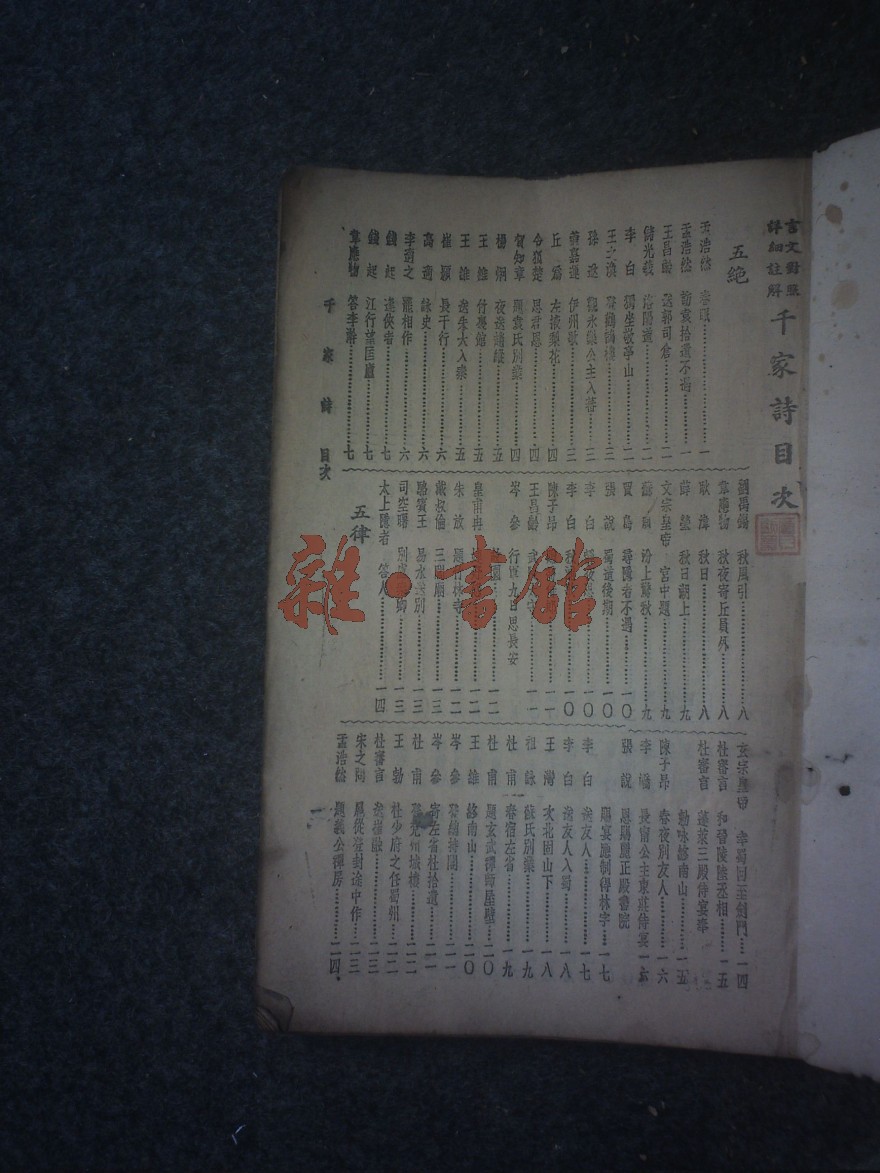 言文對照
詳細註解
千家詩目次
五絕
孟浩然 春眠……一
孟浩然 訪袁拾遺不遇……一
王昌齡 送郭司倉……一
儲光羲 洛陽道……二
李白 獨坐敬亭山……二
王之渙 登鸛鵲樓……三
孫逖 觀永樂公主入蕃……三
蓋嘉運 伊州歌……三
丘爲 左掖梨花……四
令狐楚 思君恩……四
賀知章 題袁氏別業……四
楊炯 夜送趙縱……五
王維 竹裏館……五
王維 送朱大入秦……五
崔顥 長干行……六
高適 詠史……六
李適之 罷相作……六
錢起 逢俠者……七
錢起 江行望匡廬……七
韋應物 答李澣……七
千家詩 目次
劉禹錫 秋風引……八
韋應物 秋夜寄丘員外……八
耿湋 秋日……八
薛瑩 秋日湖上……九
文宗皇帝 宮中題……九
蘇頲 汾上驚秋……九
賈島 尋隱者不遇……一〇
張說 蜀道後期……一〇
李白……一〇
李白 秋……一〇
陳子昂……一一
王昌齡 武……一一
岑參 行軍九日思長安
故園……一二
皇甫冉……一二
朱放 題竹林寺……一二
戴叔倫 三閭廟……一三
駱賓王 易水送別……一三
司空曙 別盧……卿……一三
太上隱者 答人……一四
五律
玄宗皇帝 幸蜀回至劍門……一四
杜審言 和晉陵陸丞相……一五
杜審言 蓬萊三殿侍宴奉
勅咏終南山……一五
陳子昂 春夜別友人……一六
李嶠 長甯公主東莊侍宴……一六
張說 恩賜麗正殿書院
賜宴應制得林字……一七
李白 送友人……一七
李白 送友人入蜀……一八
王灣 次北固山下……一八
祖詠 蘇氏別業……一九
杜甫 春宿左省……一九
杜甫 題玄武禪師屋壁……二〇
王維 終南山……二〇
岑參 登總持閣……二一
岑參 寄左省杜拾遺……二一
杜甫 登兗州城樓……二二
王勃 杜少府之任蜀州……二二
杜審言 送崔融……二三
宋之問 扈從登封途中作……二三
孟浩然 題義公禪房……二四
一
雜·書館